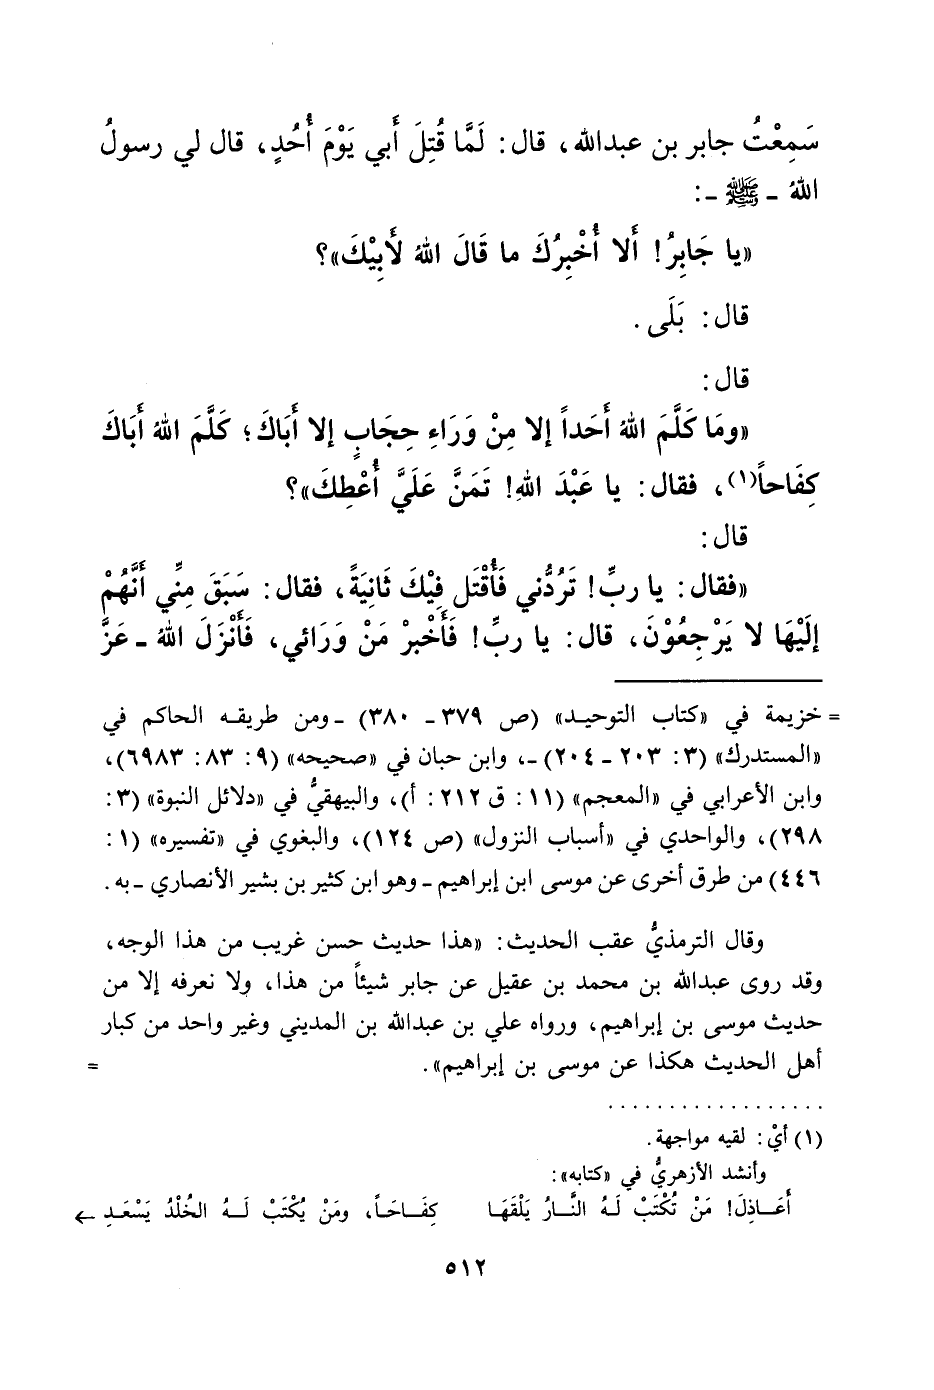 سَمِعْتُ جابر بن عبدالله، قال: لَمَّا قُتِلَ أَبي يَوْمَ أُحُدٍ، قال لي رسولُ
اللهُ ـ ﷺ ـ:
«يا جَابِرُ! أَلا أُخْبِرُكَ ما قَالَ اللهُ لأَبِيْكَ»؟
قال: بَلَى.
قال:
«ومَا كَلَّمَ اللهُ أَحَداً إلا مِنْ وَرَاءِ حِجَابٍ إلا أَبَاكَ؛ كَلَّمَ اللهُ أَبَاكَ
كِفَاحاً(١)، فقال: يا عَبْدَ اللهِ! تَمَنَّ عَلَيَّ أُعْطِكَ»؟
قال:
«فقال: يا ربِّ! تَرُدُّني فَأُقْتَل فِيْكَ ثَانِيَةً، فقال: سَبَقَ مِنِّي أَنَّهُمْ
إلَيْهَا لا يَرْجِعُوْنَ، قال: يا ربِّ! فَأَخْبِرْ مَنْ وَرَائي، فَأَنْزَلَ اللهُ ـ عَزَّ
= خزيمة في «كتاب التوحيد» (ص ٣٧٩ـ ٣٨٠) ـ ومن طريقه الحاكم في
«المستدرك» (٣: ٢٠٣ـ ٢٠٤) ـ، وابن حبان في «صحيحه» (٩: ٨٣: ٦٩٨٣)،
وابن الأعرابي في «المعجم» (١١: ق ٢١٢: أ)، والبيهقيُّ في «دلائل النبوة» (٣:
٢٩٨)، والواحدي في «أسباب النزول» (ص ١٢٤)، والبغوي في «تفسيره» (١:
٤٤٦) من طرق أخرى عن موسى ابن إبراهيم ـ وهو ابن كثير بن بشير الأنصاري ـ به.
وقال الترمذيُّ عقب الحديث: «هذا حديث حسن غريب من هذا الوجه،
وقد روى عبدالله بن محمد بن عقيل عن جابر شيئاً من هذا، ولا نعرفه إلا من
حديث موسى بن إبراهيم، ورواه علي بن عبدالله بن المديني وغير واحد من كبار
أهل الحديث هكذا عن موسى بن إبراهيم». =
. . . . . . . . . . . . . . . . . .
(١) أيْ: لقيه مواجهة.
وأنشد الأزهريُّ في «كتابه»:
أَعَـاذِلَ! مَنْ تُكْتَبْ لَهُ النَّـارُ يَلْقَهَا كِفَـاحَـاً، ومَنْ يُكْتَبْ لَـهُ الخُلْدُ يَسْعَـدِ ←
٥١٢